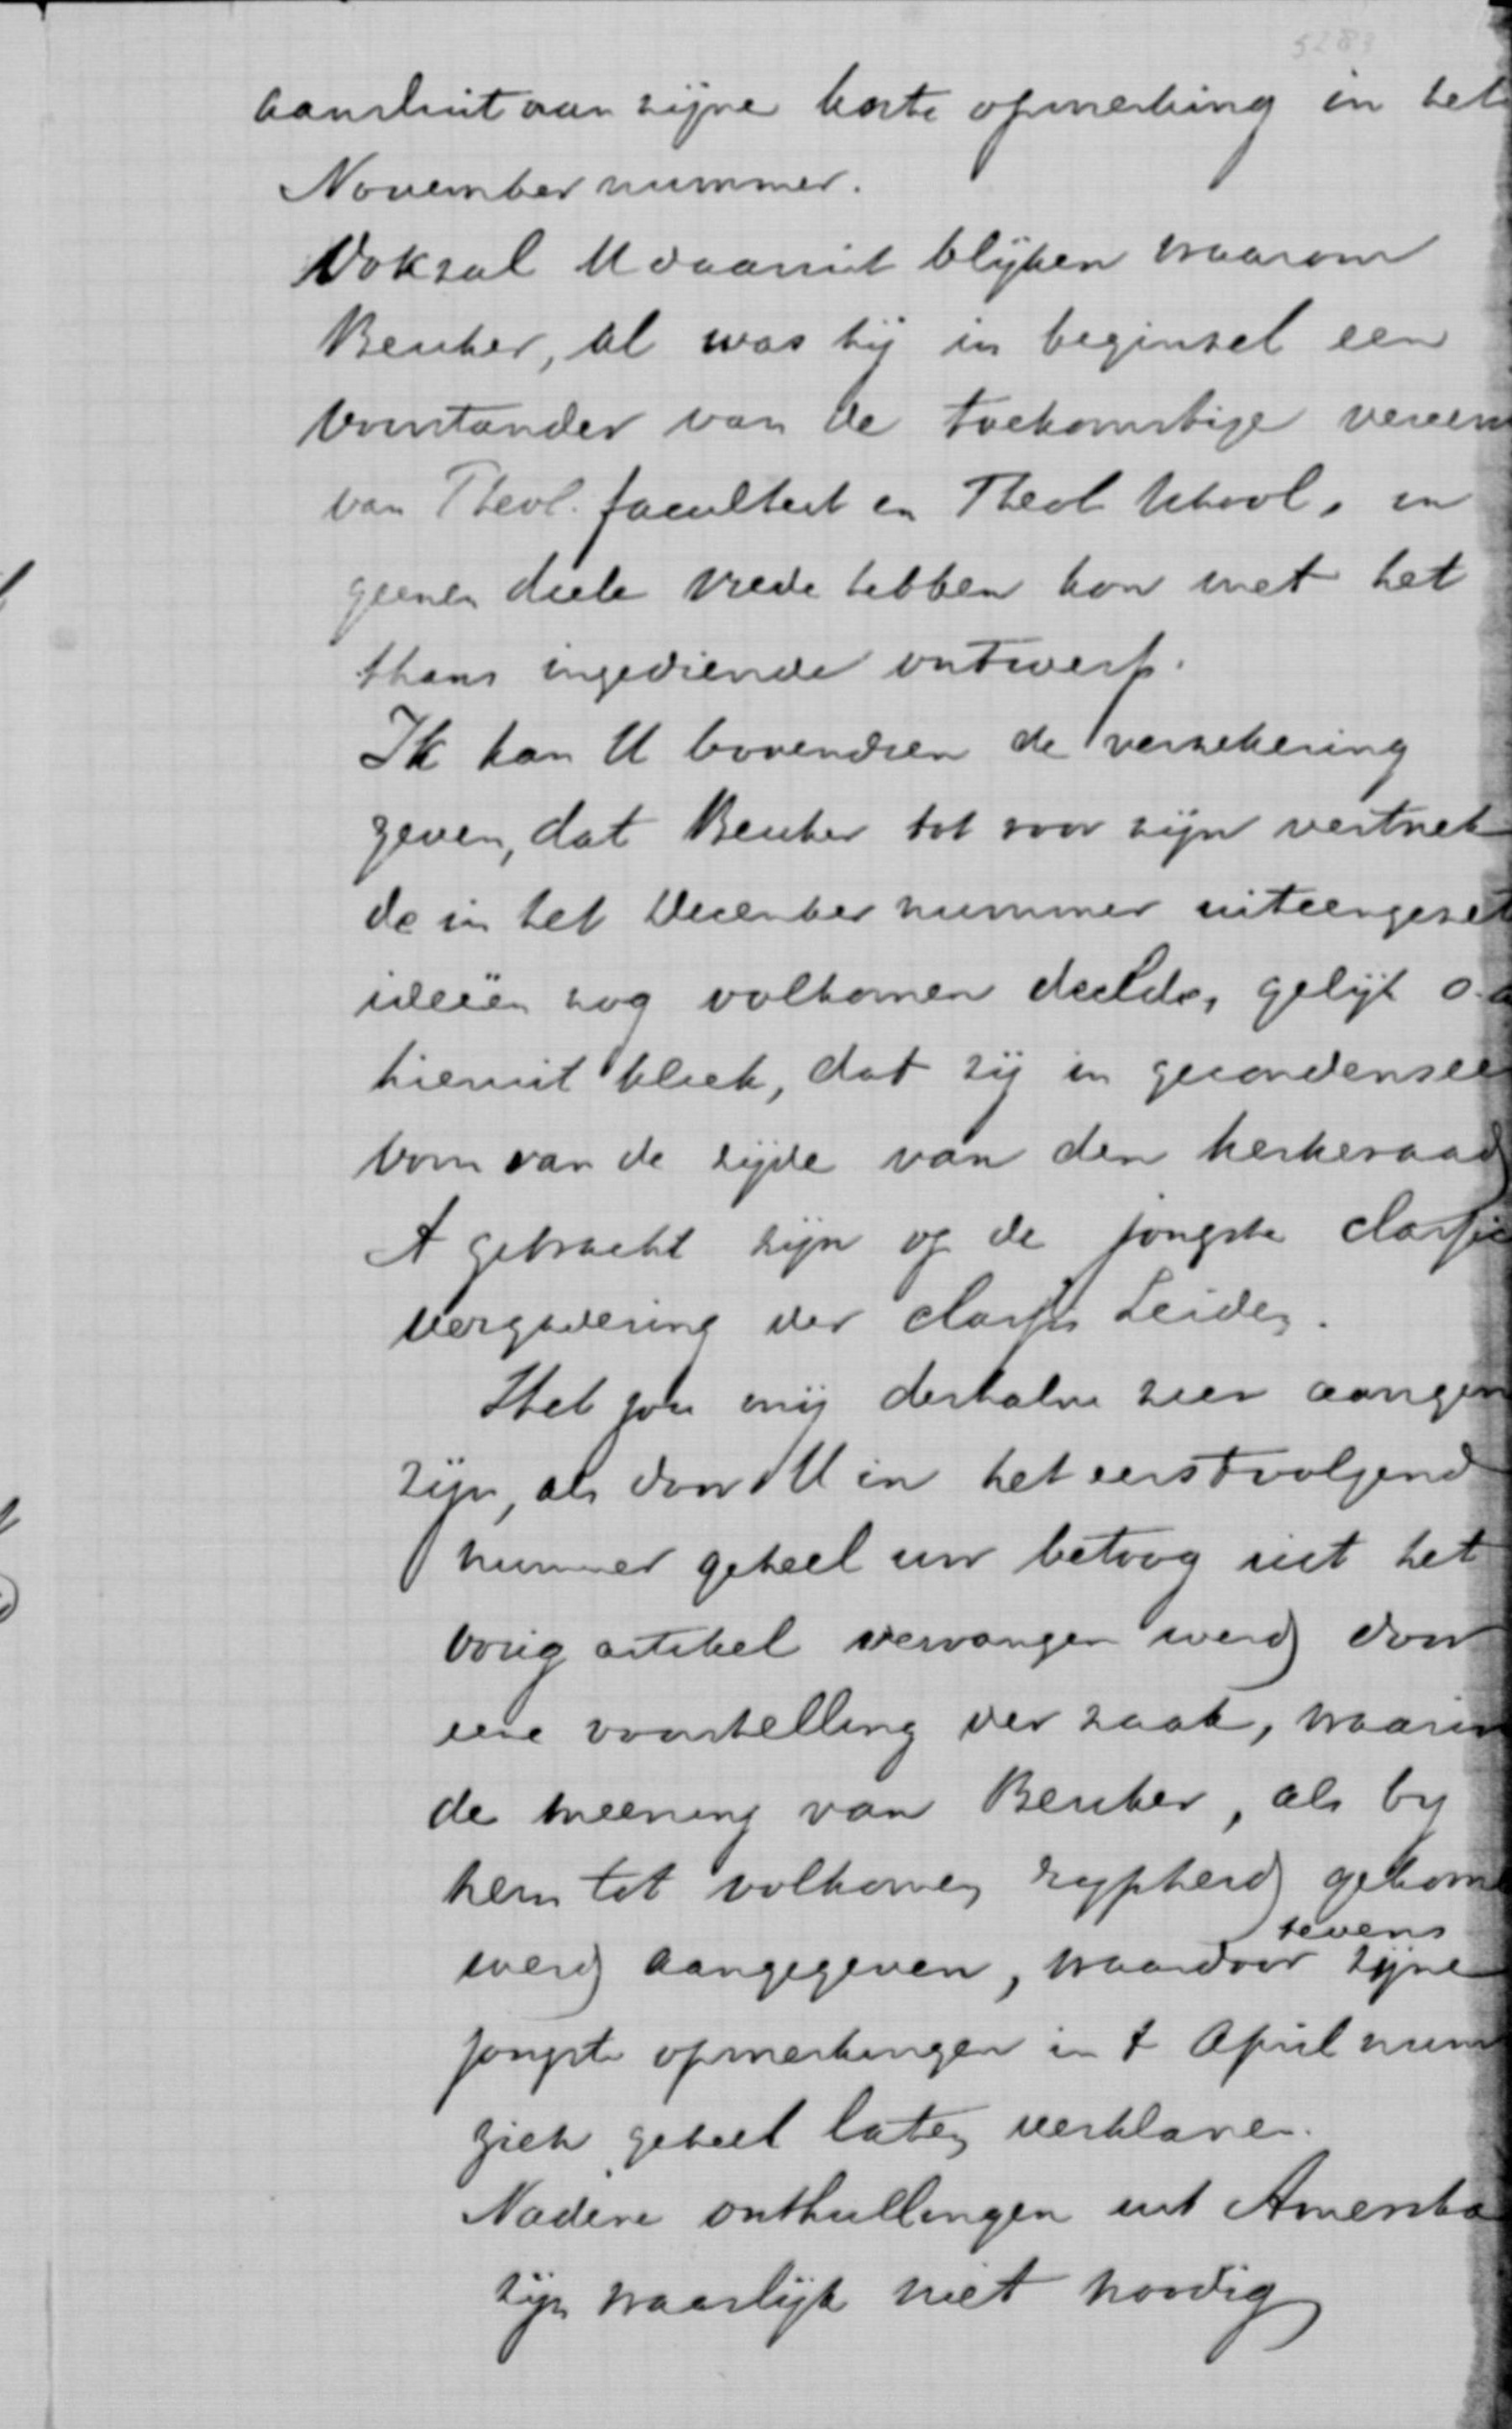 5283
aansluit aan zijne korte opmerking in het
November nummer.
Ook zal U daaruit blijken waarom
Beuker, al was hij in beginsel een
voorstander van de toekomstige vereen
van Theol. faculteit en Theol School, in
geenen deele vrede hebben kon met het
thans ingediende ontwerp.
Ik kan U bovendien de verzekering
geven, dat Beuker tot voor zijn vertrek
de in het December nummer uiteengezet
ideeën nog volkomen deelde, gelijk o.a
hieruit bleek, dat zij in gecondensee
vorm van de zijde van den kerkeraad
A gebracht zijn op de jongste classic
vergadering der classis Leiden.
Het zou mij derhalve zeer aangen
zijn, als door U in het eerstvolgend
nummer geheel uw betoog uit het
vorig artikel vervangen werd door
eene voorstelling der zaak, waarin
de meening van Beuker, als by
hem tot volkomen rypheid gekome
werd aangegeven, waardoor tevens zijne
jongste opmerkingen in 't April num
zich geheel laten verklaren.
Nadere onthullingen uit Amerika
zijn waarlijk niet noodig